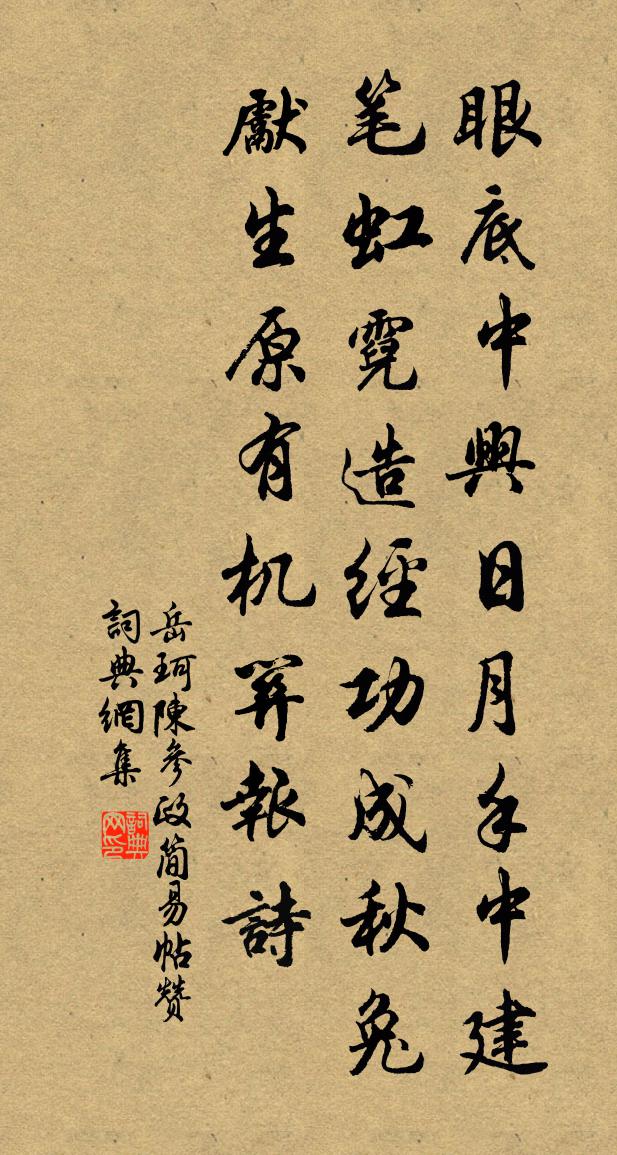 眼底中興日月手中建
笔虹霓造經功成秋兔
獻生原有机羿報詩
岳珂陳參政简易帖赞
詞典網集
詞典网印